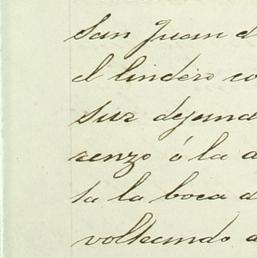 San Juan d
el lindero co
sur dejand
renzo ó la a
ta la boca d
volteando a